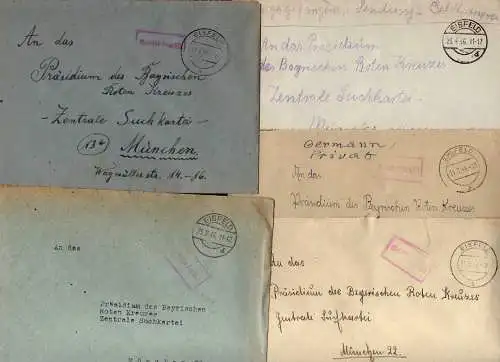 An das
Präsidium des Bayrischen
Roten Kreuzes
- Zentrale Suchkartei -
(13b) München
Wagmüllerstr. 14.-16.
EISFELD
Sendung
EISFELD
25.4.46.11-12
d
An das Präsidium
des Bayrischen Roten Kreuzes
Zentrale Suchkartei
Germann/
Privat
EISFELD
An das
Präsidium des Bayrischen Roten Kreuzes
EISFELD
d
An das
Präsidium des Bayrischen
Roten Kreuzes
Zentrale Suchkartei
EISFELD
An das
Präsidium des Bayerischen Roten Kreuzes
Zentrale Suchkartei
München 22.